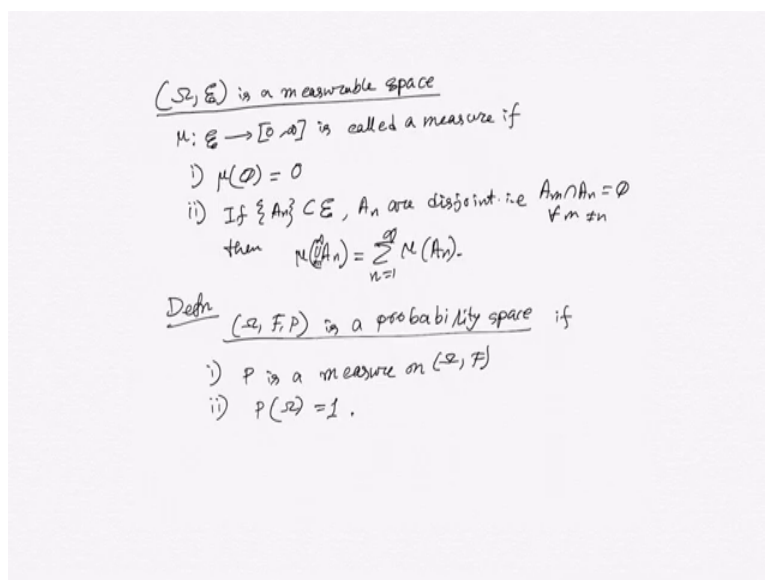 (Ω, Ɛ) is a measurable space
μ: Ɛ → [0 ∞] is called a measure if
i) μ(∅) = 0
ii) If {An} ⊂ Ɛ, An are disjoint i.e Am∩An = ∅
∀ m ≠ n
then μ(∪An) = ∑ μ(An).
∞
n=1
Defn (Ω, F, P) is a probability space if
i) P is a measure on (Ω, F)
ii) P(Ω) = 1.